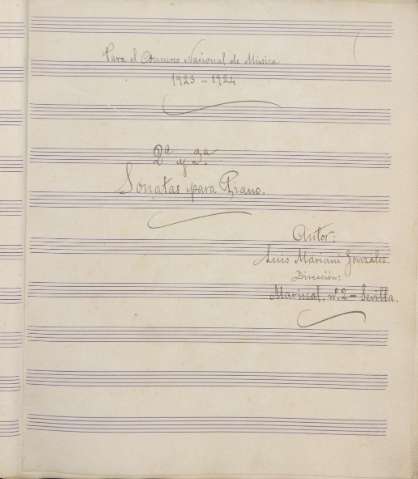 Para el Concurso Nacional de Música
1923-1924
2ª y 3ª
Sonatas para Piano.
Autor:
Luis Mariani González
Dirección:
Mariscal, nº 2 - Sevilla.